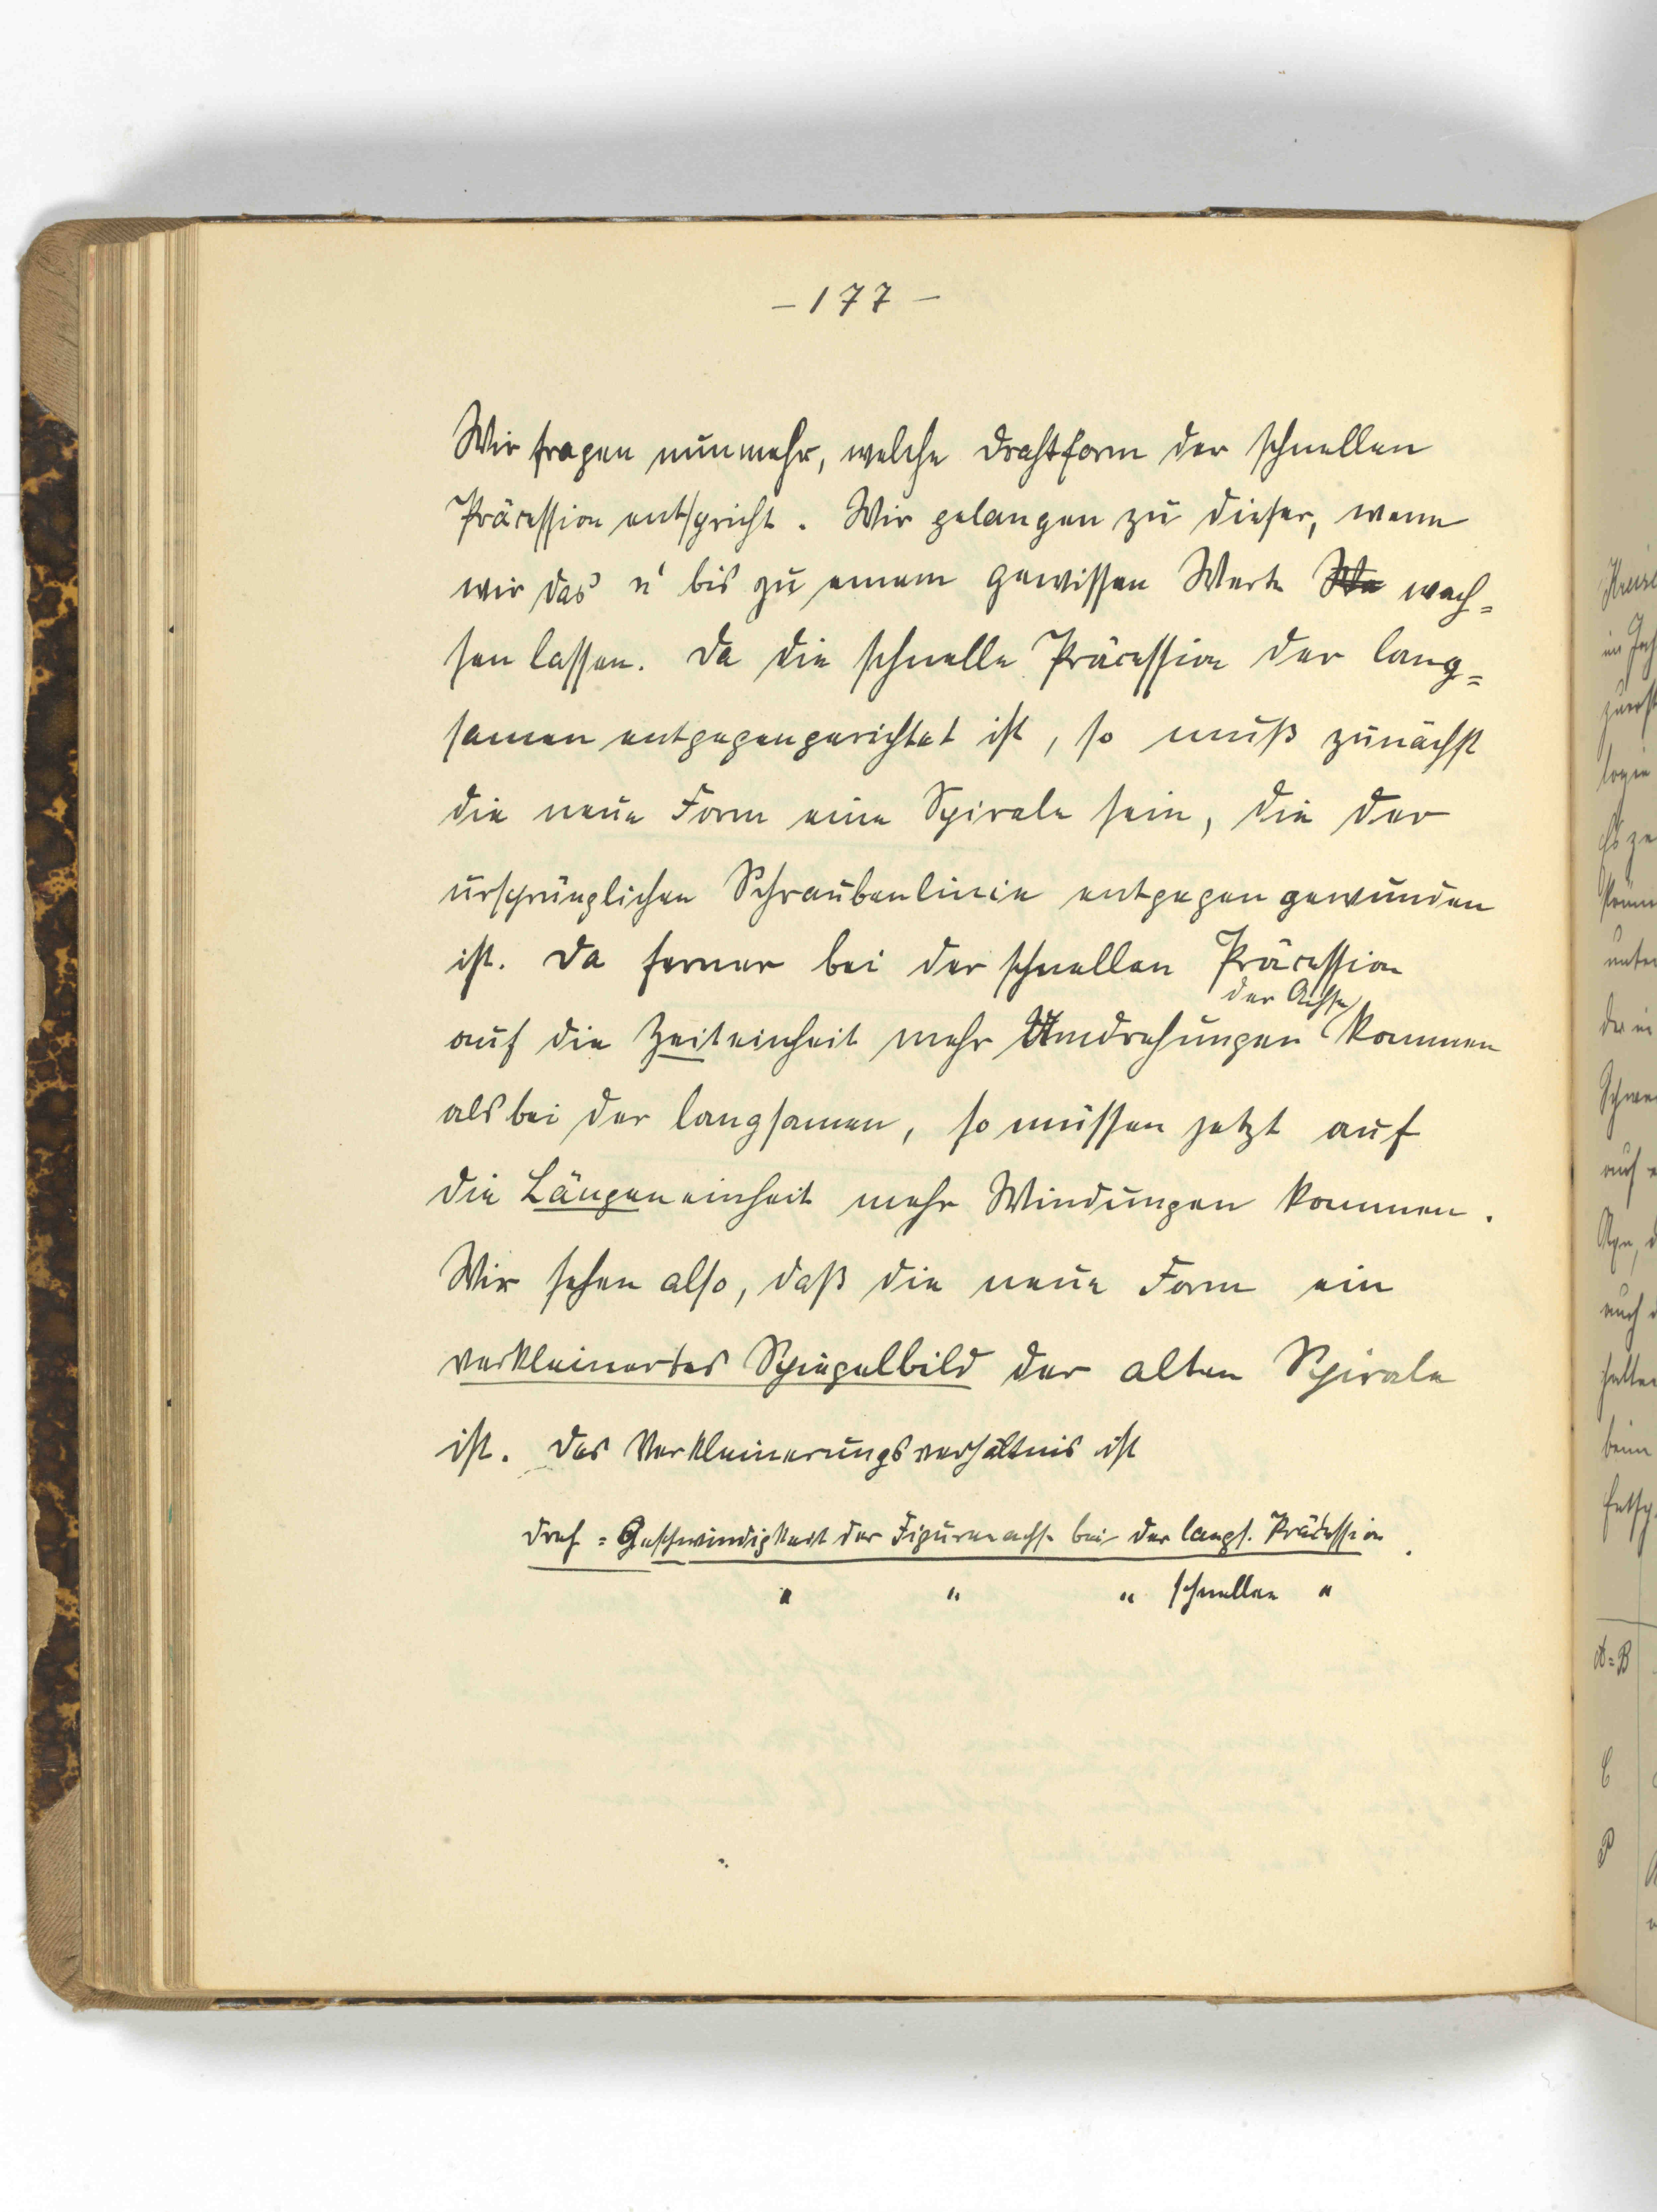 – 177 –
Wir fragen nunmehr, welche Drahtform der schnellen
Präcession entspricht. Wir gelangen zu dieser, wenn
wir das n' bis zu einem gewissen Werte wach=
sen lassen. Da die schnelle Präcession der lang=
samen entgegengerichtet ist, so muß zunächst
die neue Form eine Spirale sein, die der
ursprünglichen Schraubenlinie entgegen gewunden
ist. Da ferner bei der schnellen Präcession
der Achse
auf die Zeiteinheit mehr Umdrehungen kommen
als bei der langsamen, so müssen jetzt auf
die Längeneinheit mehr Windungen kommen.
Wir sehen also, daß die neue Form ein
verkleinertes Spiegelbild der alten Spirale
ist. Das Verkleinerungsverhältnis ist
Dreh=Geschwindigkeit der Figurenachse bei der langs. Präcession.
" " " schnellen "